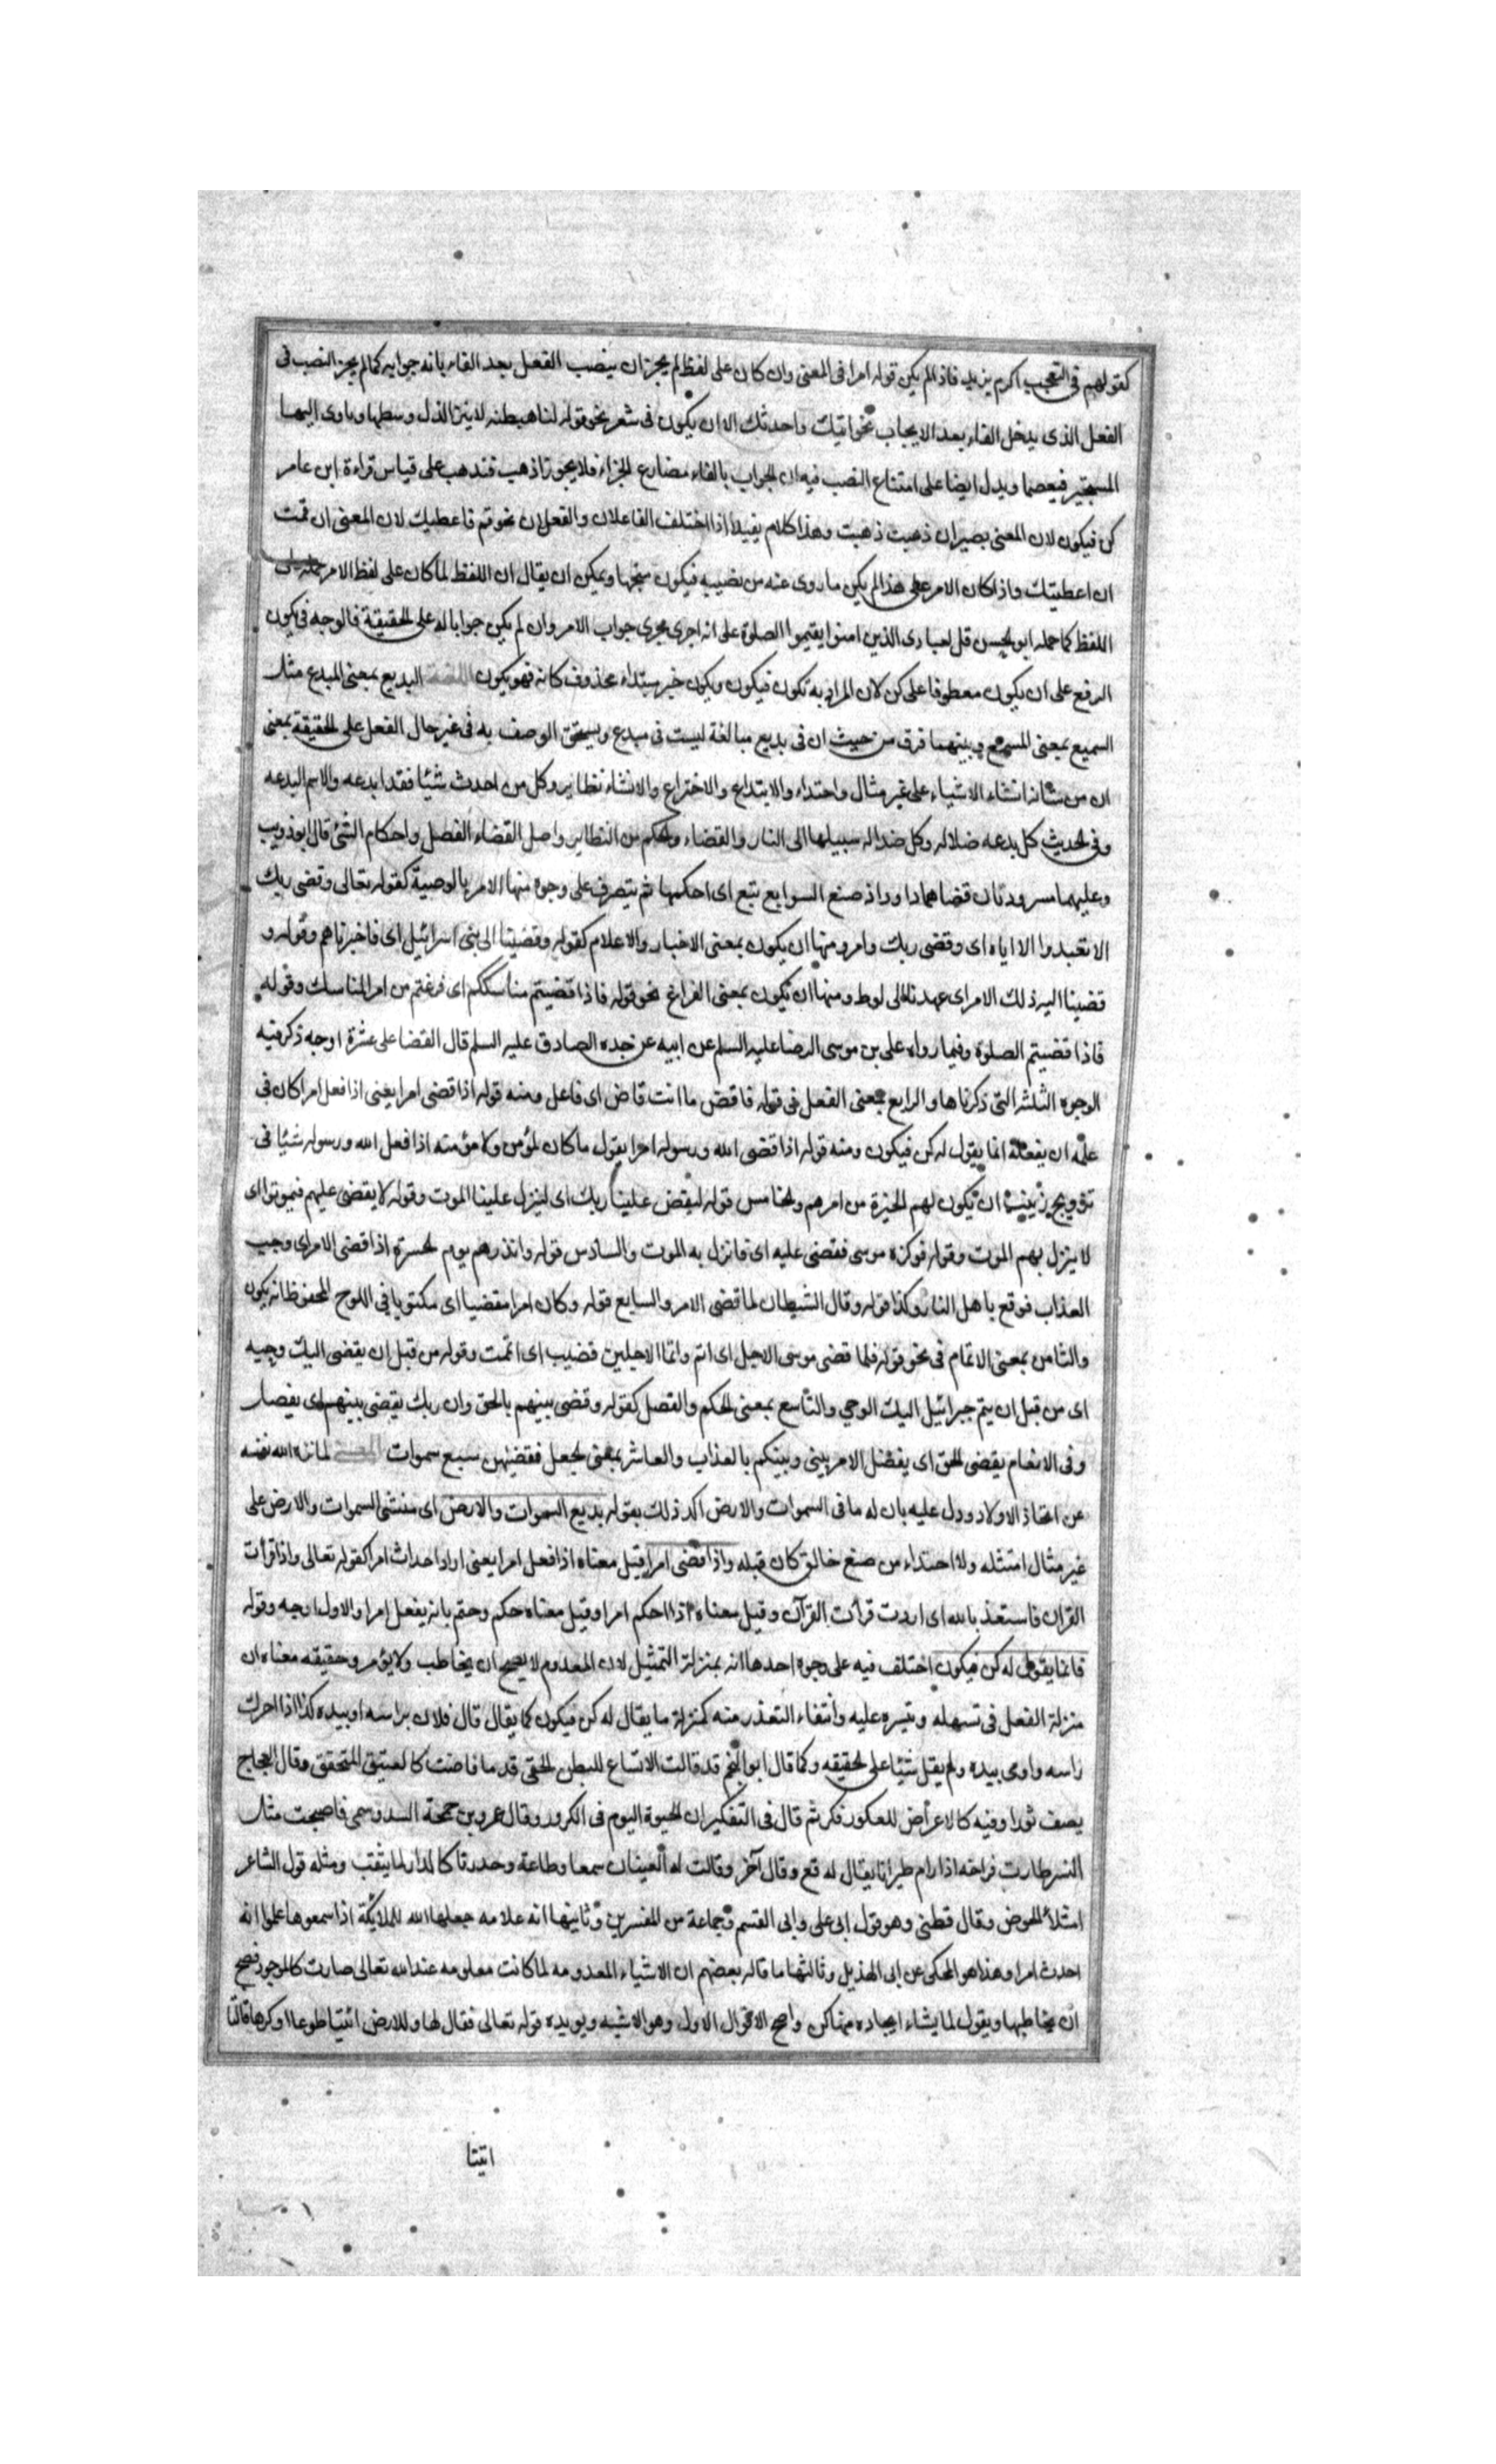 كقولهم فى التعجب اكرم بزيد فاذا لم يكن قوله امرا فى المعنى وان كان على لفظه لم يجز ان ينصب الفعل بعد الفاء بانه جوابه كما لم يجز النصب فى
الفعل الذى يدخل الفاء بعد الايجاب نحو اتيك واحدثك الا ان يكون فى شعر نحو قوله لنا هبطنه لا ينزل الذل وسطها وياوى اليها
المستجير فيعصما ويدل ايضا على امتناع النصب فيه ان الجواب بالفاء مضارع الجزاء فلا يجوز اذهب فتذهب على قياس قراءة ابن عامر
كن فيكون لان المعنى يصير ان ذهبت ذهبت وهذا كلام يفيد اذا اختلف الفاعلان والفعلان نحو قم فاعطيك لان المعنى ان قمت
ان اعطيتك واذا كان الامر على هذا لم يكن ما روى عنه من نصيبه فيكون متجها ويمكن ان يقال ان اللفظ لما كان على لفظ الامر حمله على
اللفظ كما حمله ابو الحسن قل لعبادى الذين امنوا يقيموا الصلوة على انه اجرى مجرى جواب الامر وان لم يكن جوابا له على الحقيقة فالوجه فى يكون
الرفع على ان يكون معطوفا على كن لان المراد به نكون فيكون ويكون خبر مبتداء محذوف كانه فهو يكون اللغة البديع بمعنى المبدع مثل
السميع بمعنى المسمع وبينهما فرق من حيث ان فى بديع مبالغة ليست فى مبدع ويستحق الوصف به فى غير حال الفعل على الحقيقة بمعنى
ان من شانه انشاء الاشياء على غير مثال واحتذاء والابتداع والاختراع والانشاء نظاير وكل من احدث شيئا فقد ابدعه والاسم البدعه
وفى الحديث كل بدعه ضلاله وكل ضلاله سبيلها الى النار والقضاء والحكم من النظاير واصل القضاء الفصل واحكام الشئ قال ابو ذويب
وعليهما مسرودتان قضاهما داود اذ صنع السوابغ تبع اى احكمها ثم يتصرف على وجوه منها الامر بالوصية كقوله تعالى وقضى ربك
الا تعبدوا الا اياه اى وقضى ربك وامر ومنها ان يكون بمعنى الاخبار والاعلام كقوله وقضينا الى بنى اسرائيل اى فاخبرناهم وقوله و
قضينا اليه ذلك الامر اى عهدنا الى لوط ومنها ان تكون بمعنى الفراغ نحو قوله فاذا قضيتم مناسككم اى فرغتم من امر المناسك وقوله
فاذا قضيتم الصلوة وفيما رواه على بن موسى الرضا عليه السلم عن ابيه عن جده الصادق عليه السلم قال القضا على عشرة اوجه ذكر فيه
الوجوه الثلثه التى ذكرناها والرابع بمعنى الفعل فى قوله فاقض ما انت قاض اى فاعل ومنه قوله اذا قضى امرا يعنى اذا فعل امرا كان فى
علمه ان يفعله انما يقول له كن فيكون ومنه قوله اذا قضى الله ورسوله امرا يقول ما كان لمؤمن ولا مؤمنه اذا فعل الله ورسوله شيئا فى
تزويج زينب ان يكون لهم الخيرة من امرهم والخامس قوله ليقض علينا ربك اى لينزل علينا الموت وقوله لا يقضى عليهم فيموتوا اى
لا ينزل بهم الموت وقوله فوكزه موسى فقضى عليه اى فانزل به الموت والسادس قوله وانذرهم يوم الحسرة اذا قضى الامر اى وجب
العذاب فوقع باهل النار وكذا قوله وقال الشيطان لما قضى الامر والسابع قوله وكان امرا مقضيا اى مكتوبا فى اللوح المحفوظ انه يكون
والثامن بمعنى الاتمام فى نحو قوله فلما قضى موسى الاجل اى اتم وايما الاجلين قضيت اى اتممت وقوله من قبل ان يقضى اليك وحيه
اى من قبل ان يتم جبرائيل اليك الوحى والتاسع بمعنى الحكم والفصل كقوله وقضى بينهم بالحق وان ربك يقضى بينهم اى يفصل
وفى الانعام يقضى الحق اى يفصل الامر بينى وبينكم بالعذاب والعاشر بمعنى الجعل فقضيهن سبع سموات المعنى لما نزه الله نفسه
عن اتخاذ الاولاد ودل عليه بان له ما فى السموات والارض اكد ذلك بقوله بديع السموات والارض اى منشئ السموات والارض على
غير مثال امتثله ولا احتذاء من صنع خالق كان قبله واذا قضى امرا قيل معناه اذا فعل امرا يعنى اراد احداث امر كقوله تعالى واذا قرأت
القران فاستعذ بالله اى اردت قرأت القرآن وقيل معناه اذا احكم امرا وقيل معناه حكم وحتم بانه يفعل امرا والاول اوجه وقوله
فانما يقول له كن فيكون اختلف فيه على وجوه احدها انه بمنزلة التمثيل لان المعدوم لا يصح ان يخاطب ولا يؤمر وحقيقه معناه ان
منزلة الفعل فى تسهله وتيسره عليه وانتفاء التعذر منه كمنزلة ما يقال له كن فيكون كما يقال قال فلان براسه او بيده كذا اذا حرك
راسه واومى بيده ولم يقل شيئا على الحقيقه وكما قال ابو النجم قد قالت الانساع للبطن الحقى قدما فاضت كالعتيق المحقق وقال العجاج
يصف ثورا وفيه كالاعراض للعكور فكر ثم قال فى التفكير ان الحيوة اليوم فى الكرور وقال عمرو بن حممة السدوسى فاصبحت مثل
النسر طارت فراخه اذا رام طيرانا يقال له قع وقال آخر وقالت له العينان سمعا وطاعة وحدرتا كالدر لما يثقب ومثله قول الشاعر
امتلأ الحوض وقال قطنى وهو قول ابى على وابى القسم وجماعة من المفسرين وثانيها انه علامه جعلها الله للملائكة اذا سمعوها علموا انه
احدث امرا وهذا هو المحكى عن ابى الهذيل وثالثها ما قاله بعضهم ان الاشياء المعدومه لما كانت معلومه عند الله تعالى صارت كالموجود فصح
ان يخاطبها ويقول لما يشاء ايجاده منها كن واصح الاقوال الاول وهو الاشبه ويويده قوله تعالى فقال لها وللارض ائتيا طوعا او كرها قالتا
اتينا